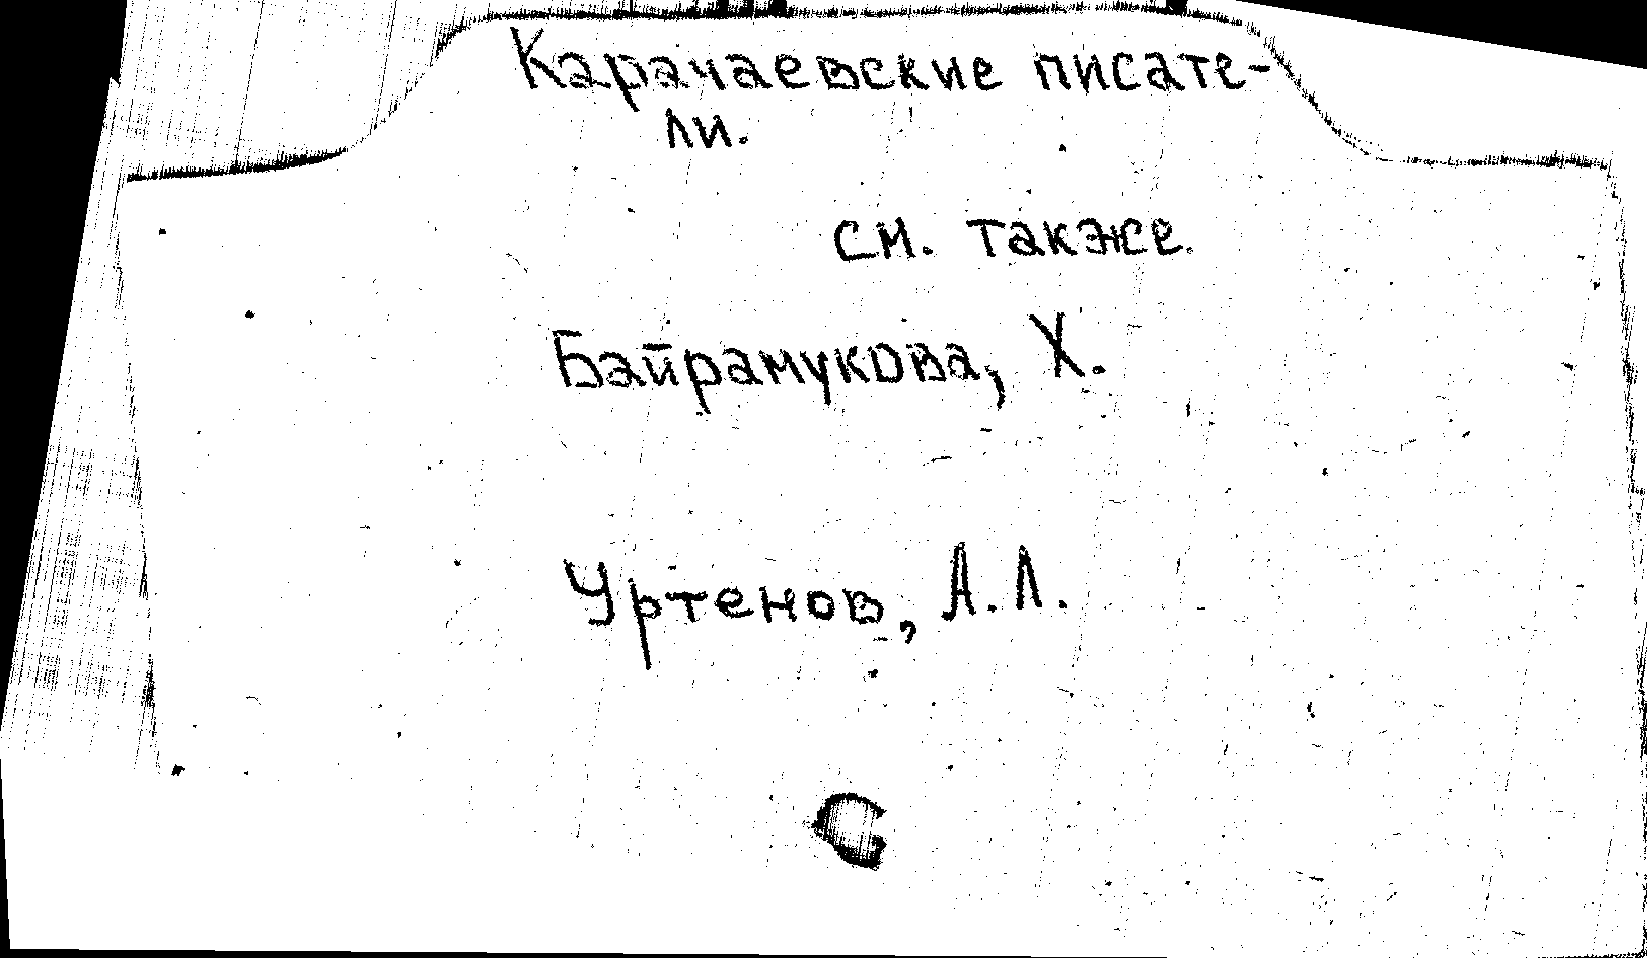 Карачаевские писате-
ли.
см. также.
Байрамукова, Х.
Уртенов, А.Л.